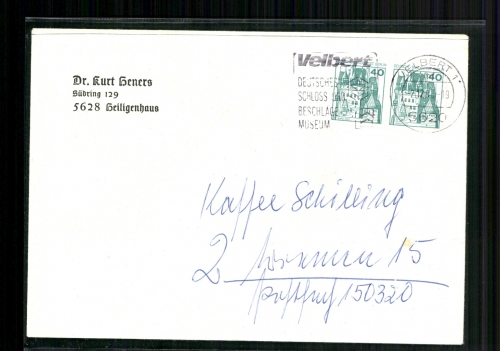 Dr. Kurt Geners
Südring 129
5628 Heiligenhaus
Velbert
DEUTSCHES
SCHLOSS UND
BESCHLÄGE
MUSEUM
40
40
VELBERT 1
5620
Kaffee Schilling
2 Bremen 15
Postfach 150320